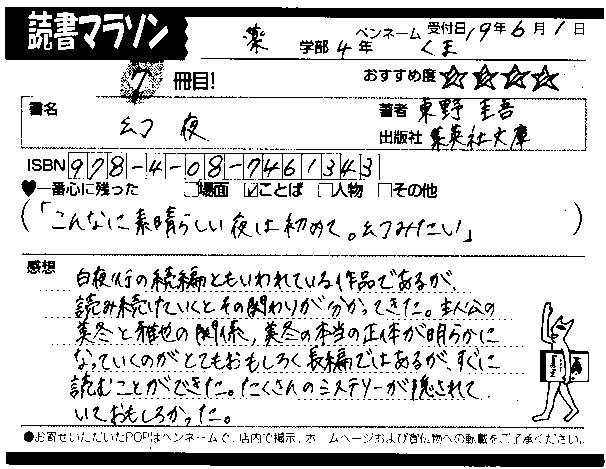 読書マラソン
薬 学部 4年 ペンネーム くま 受付日 19年6月1日
7 冊目! おすすめ度 ☆☆☆☆
書名 幻夜
著者 東野圭吾
出版社 集英社文庫
ISBN 978-4-08-7461343
♥一番心に残った □場面 ☑ことば □人物 □その他
(「こんなに素晴らしい夜は初めて。幻みたい」)
感想
白夜行の続編ともいわれている作品であるが、
読み続けていくとその関わりが分かってきた。主人公の
美冬と雅也の関係、美冬の本当の正体が明らかに
なっていくのがとてもおもしろく長編ではあるが、すぐに
読むことができた。たくさんのミステリーが隠されて
いておもしろかった。
●お寄せいただいたPOPはペンネームで、店内で掲示、ホームページおよび宣伝物への転載をご了承ください。